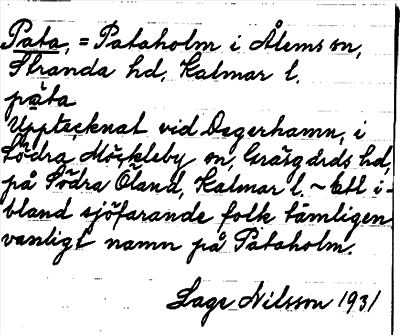 Pata, = Pataholm i Ålems sn,
Stranda hd, Kalmar l.
pạ̈ta
Upptecknat vid Degerhamn, i
Södra Möckleby sn, Gräsgårds hd,
på Södra Öland, Kalmar l. ~ Ett i-
bland sjöfarande folk tämligen
vanligt namn på Pataholm.
Lage Nilsson 1931